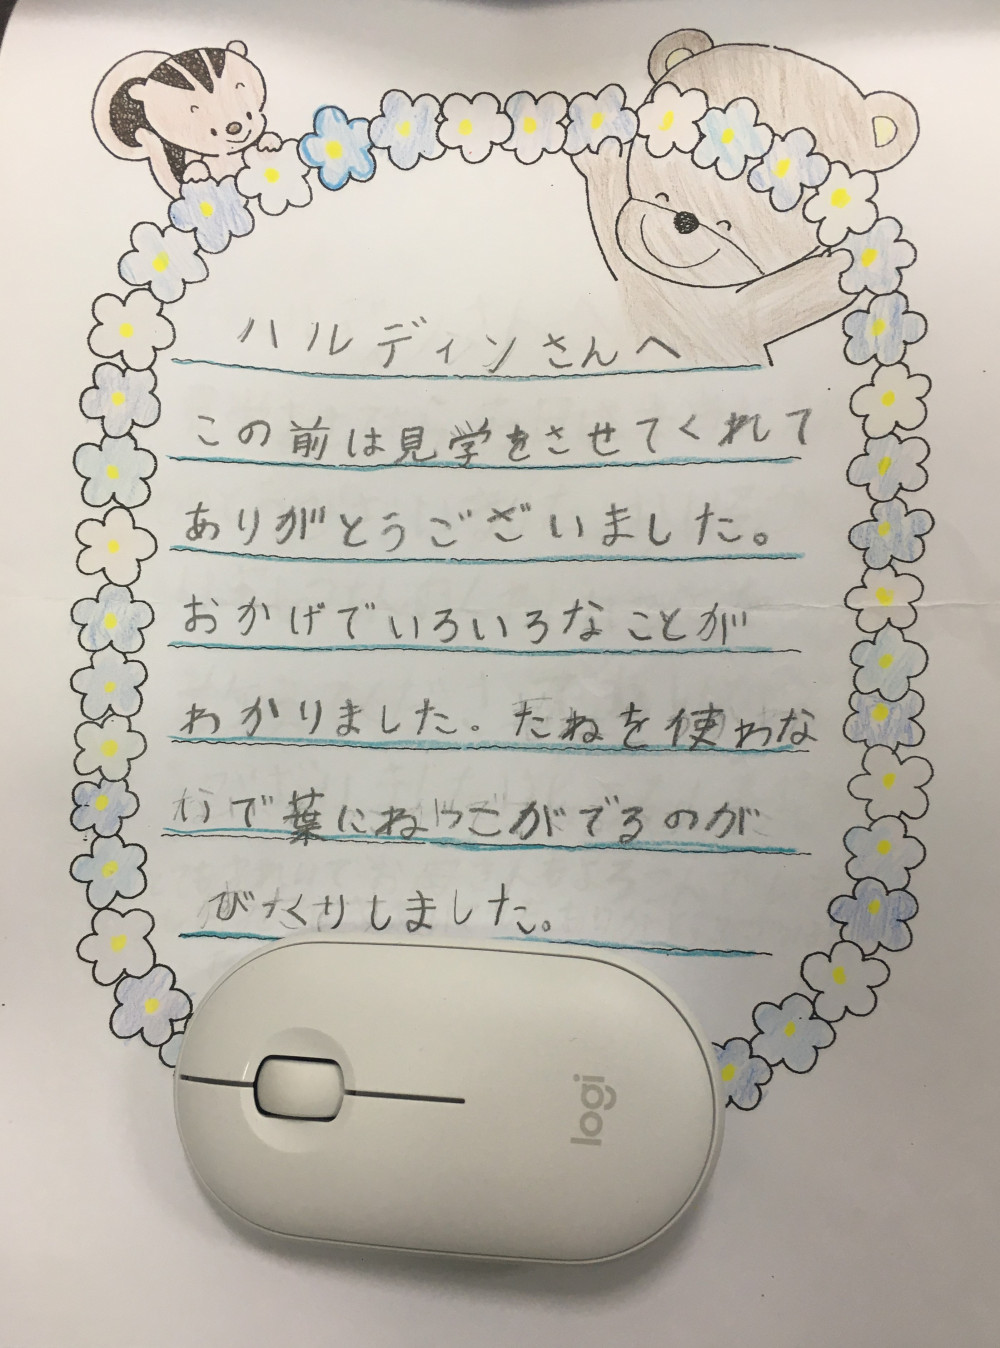 ハルディンさんへ
この前は見学をさせてくれて
ありがとうございました。
おかげでいろいろなことが
わかりました。たねを使わな
いで葉にねやこがでるのが
びっくりしました。
logi